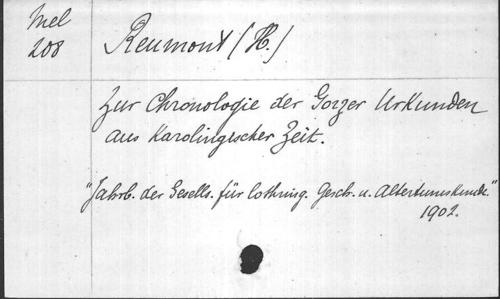 Mel
208
Reumont (H.)
Zur Chronologie der Gorzer Urkunden
aus Karolingischer Zeit.
"Jahrb. der Gesells. für lothring. Gesch. u. Altertumskunde."
1902.